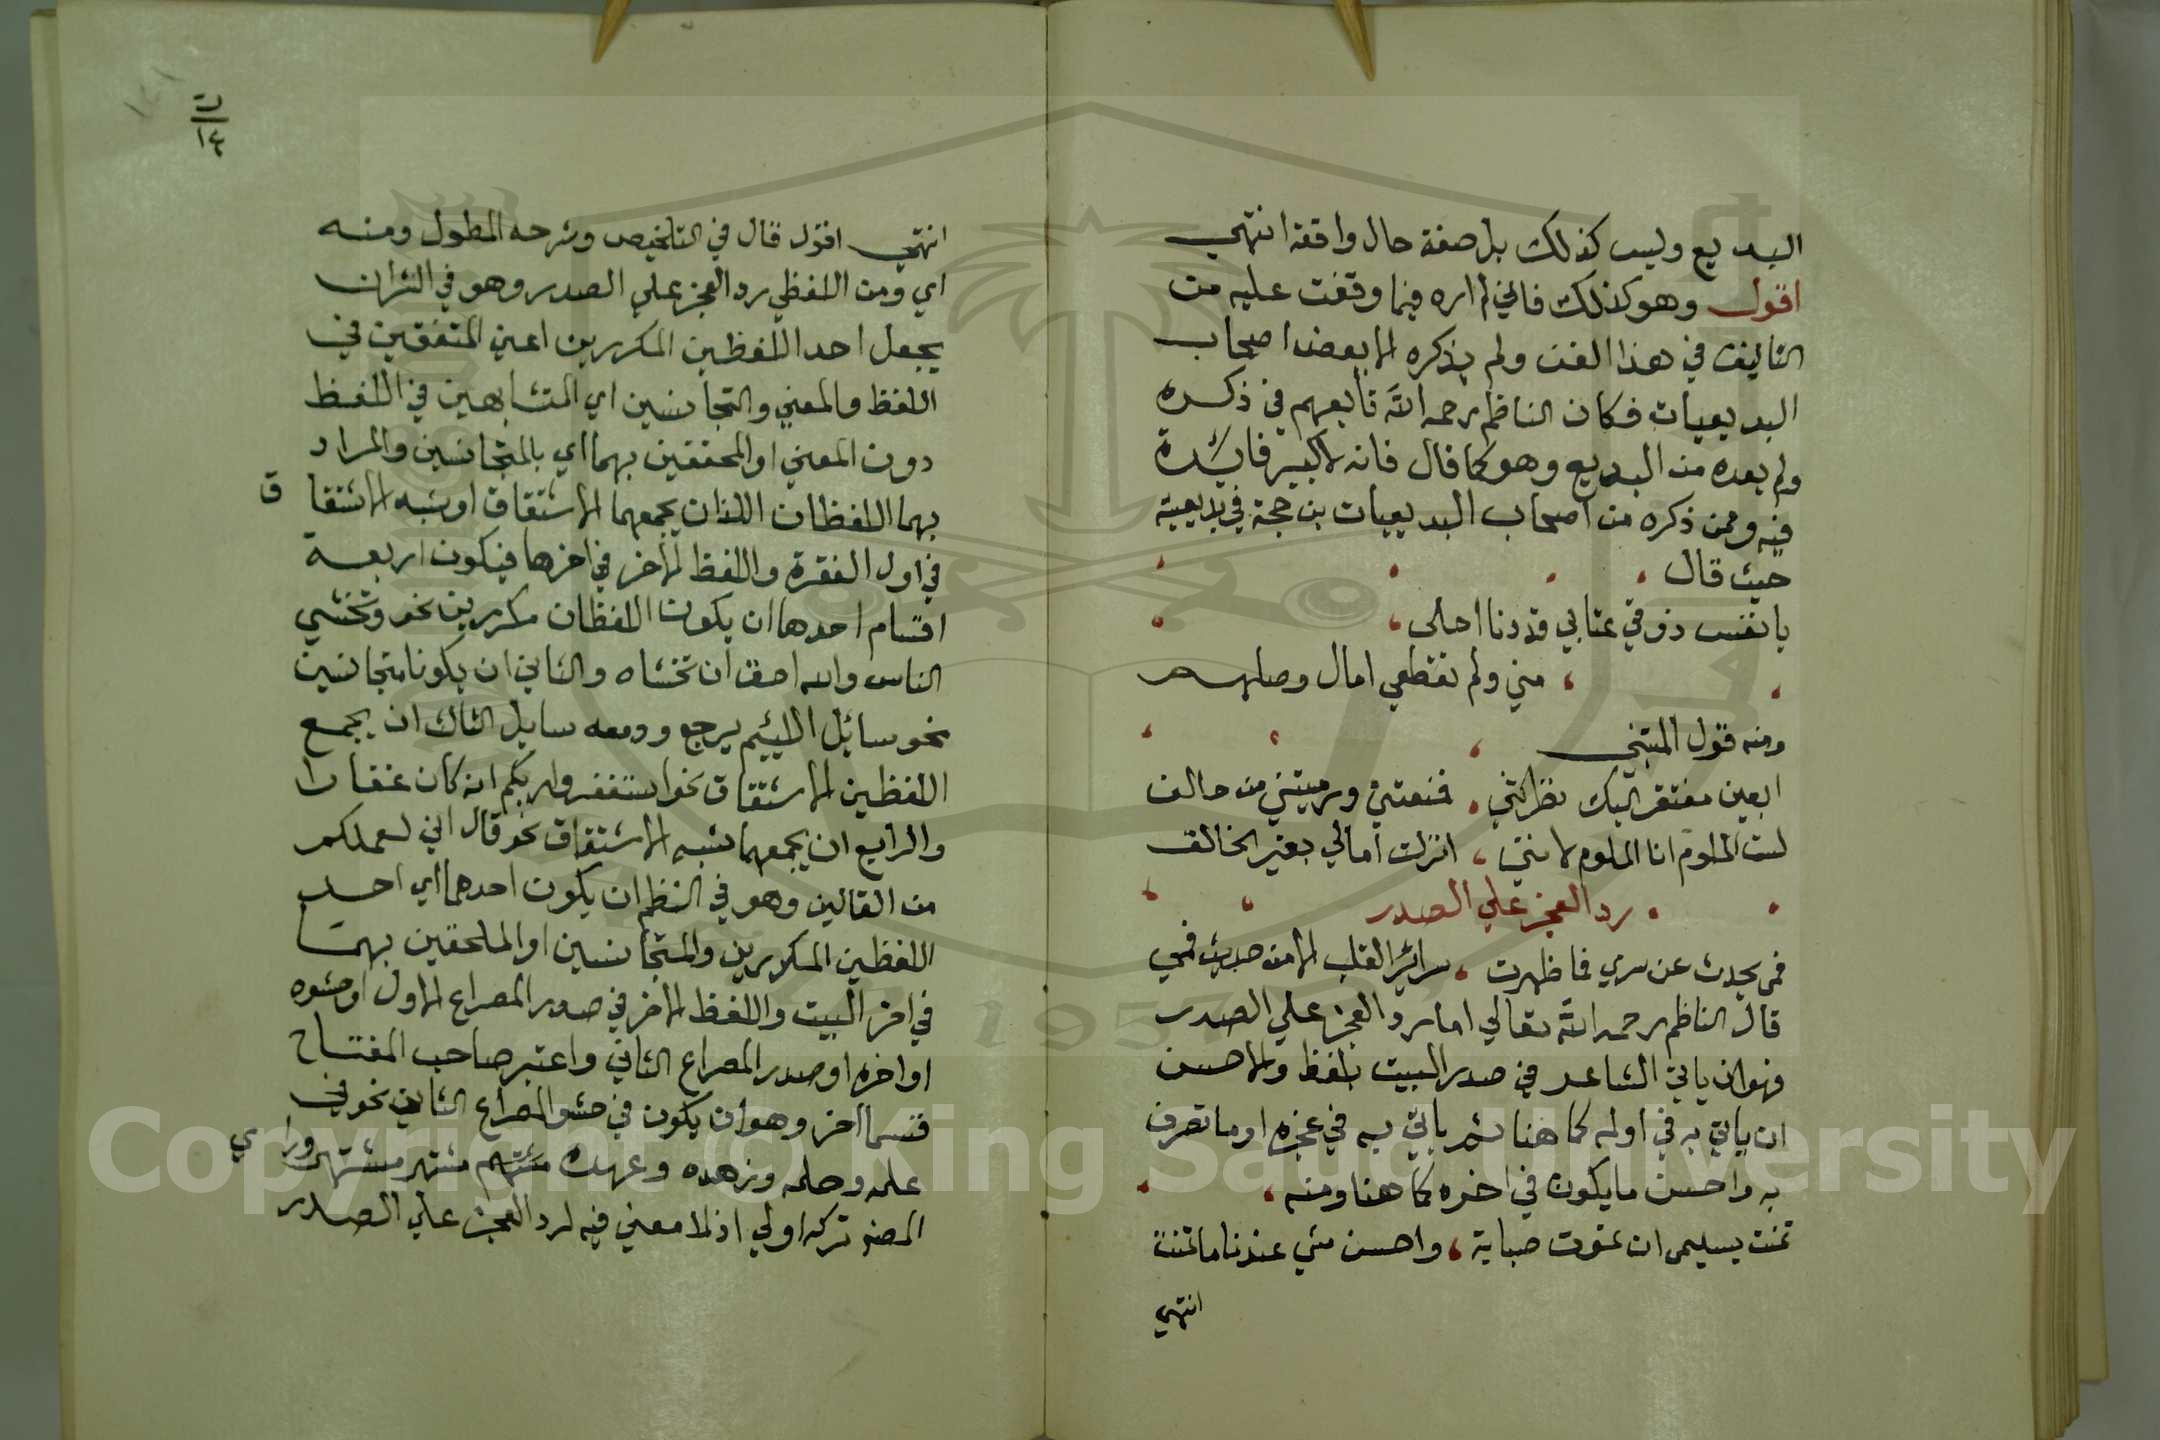 البديع وليس كذلك بل صفة حال واقعة انتهي
اقول وهو كذلك فاني لم اره فيما وقفت عليه من
التاليف في هذا الفن ولم يذكره الا بعض اصحاب
البديعيات فكان الناظم رحمه الله تابعهم في ذكره
ولم يعده من البديع وهو كما قال فانه لا كبير فايدة
فيه وممن ذكره من اصحاب البديعيات بن حجة في بديعيته
حيث قال
يا نفس ذوقي عتابي قد دنا اجلي
مني ولم تقطعي امال وصلهم
ومنه قول المتنبي
ابعين مفتقر اليك نظرتني فنعتني ورميتني من حالف
لست الملوم انا الملوم لانني انزلت امالي بغير الخالق
رد العجز علي الصدر
فمي يحدث عن سري فما ظهرت سرائر القلب الا من حديث فمي
قال الناظم رحمه الله تعالي اما رد العجز علي الصدر
فهو ان ياتي الشاعر في صدر البيت بلفظ والاحسن
ان ياتي به في اوله كما هنا ثم ياتي به في عجزه او ما تصرف
به واحسن ما يكون في اخره كما هنا ومنه
تمنت سليمى ان نموت صبابة واحسن شي عندنا ما تمنت
انتهي
ت
١٤
انتهي اقول قال في التلخيص وشرحه المطول ومنه
اي ومن اللفظي رد العجز علي الصدر وهو في النثر ان
يجعل احد اللفظين المكررين اعني المتفقين في
اللفظ والمعني والتجانسين اي المتشابهين في اللفظ
دون المعني او المحققين بهما اي بالمتجانسين والمراد
بهما اللفظان اللذان يجمعهما الاشتقاق او شبه الاشتقا ق
في اول الفقرة واللفظ الاخر في اخرها فيكون اربعة
اقسام احدها ان يكون اللفظان مكررين نحو وتخشي
الناس والله احق ان تخشاه والثاني ان يكونا متجانسين
نحو سائل اللئيم يرجع ودمعه سايل الثالث ان يجمع
اللفظين الاشتقاق نحو استغفروا ربكم انه كان غفارا
والرابع ان يجمعهما شبه الاشتقاق نحو قال اني لعملكم
من القالين وهو في النظم ان يكون احدهما اي احد
اللفظين المكررين والمتجانسين او الملحقين بهما
في اخر البيت واللفظ الاخر في صدر المصراع الاول او حشوه
او اخره او صدر المصراع الثاني واعتبر صاحب المفتاح
قسما اخر وهو ان يكون في حشو المصراع الثاني نحو في
علمه وحلمه وزهده وعهده مشتهر مشتهر وراي
المصنف تركه اولي اذ لا معني فيه لرد العجز علي الصدر
1957
Copyright © King Saud University